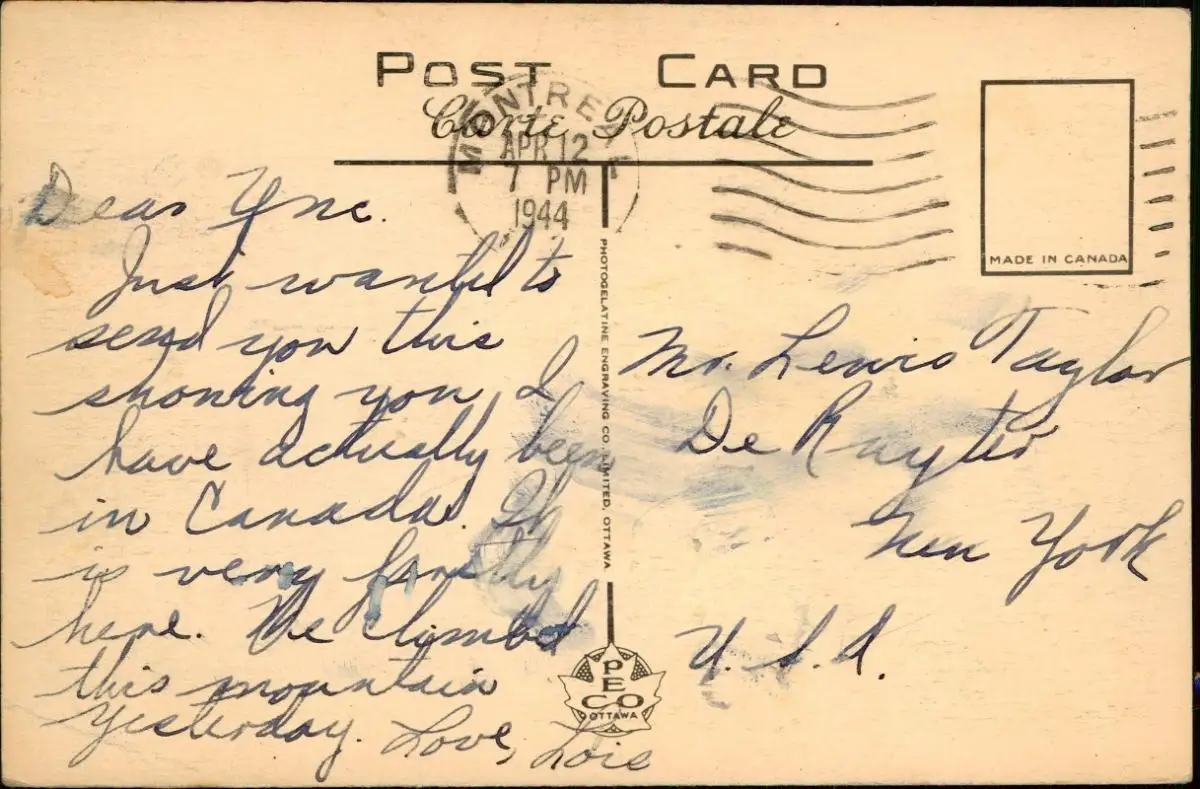 POST CARD
Carte Postale
MONTREAL
APR 12
7 PM
1944
MADE IN CANADA
Dear
Just wanted to
send you this
showing you I
have actually been
in Canada. It
is very
here. We climbed
this mountain
yesterday. Love, Lois
PHOTOGELATINE ENGRAVING CO. LIMITED, OTTAWA
PECO
OTTAWA
Mr. Lewis Taylor
De Ruyter
New York
U.S.A.